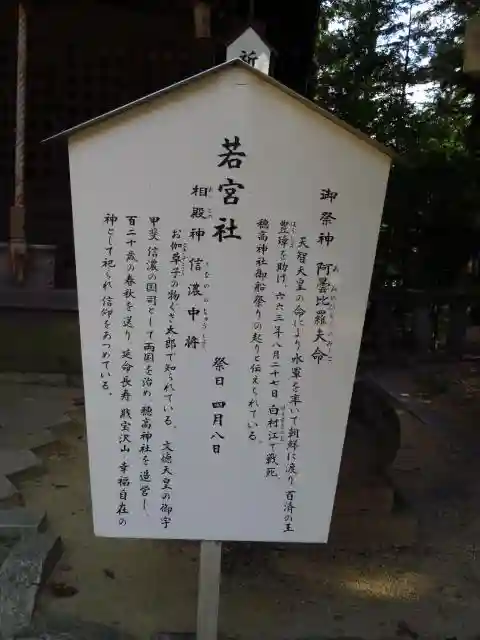 若宮社
御祭神 阿曇比羅夫命
天智天皇の命により水軍を率いて朝鮮に渡り百済の王
豊璋を助け、六六三年八月二十七日 白村江で戦死
穂高神社御船祭りの起りと伝えられている。
祭日 四月八日
相殿神 信濃中将
お伽草子の物ぐさ太郎で知られている。 文徳天皇の御宇
甲斐 信濃の国司として両国を治め 穂高神社を造営し、
百二十歳の春秋を送り 延命長寿 財宝沢山 幸福自在の
神として祀られ信仰をあつめている。